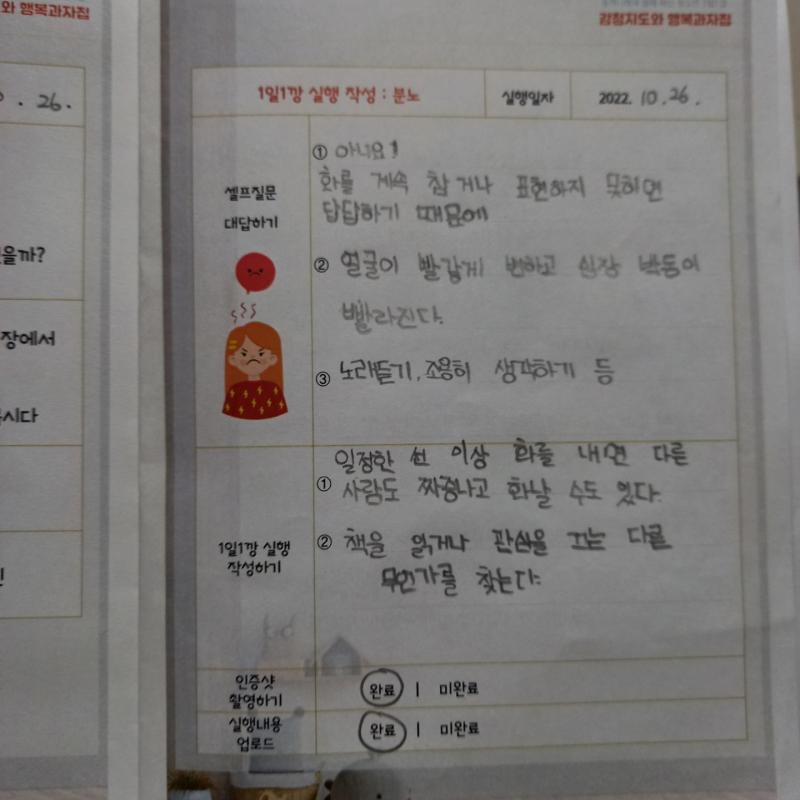 와 행복과자집
감정지도와 행복과자집
. 26.
1일1깡 실행 작성 : 분노
실행일자
2022. 10. 26.
셀프질문
대답하기
① 아니요!
화를 계속 참거나 표현하지 못하면
답답하기 때문에
② 얼굴이 빨갛게 변하고 심장 박동이
빨라진다.
③ 노래듣기, 조용히 생각하기 등
을까?
장에서
시다
1일1깡 실행
작성하기
일정한 선 이상 화를 내면 다른
① 사람도 짜증나고 화날 수도 있다.
② 책을 읽거나 관심을 끄는 다른
무언가를 찾는다.
인증샷
촬영하기
완료 | 미완료
실행내용
업로드
완료 | 미완료